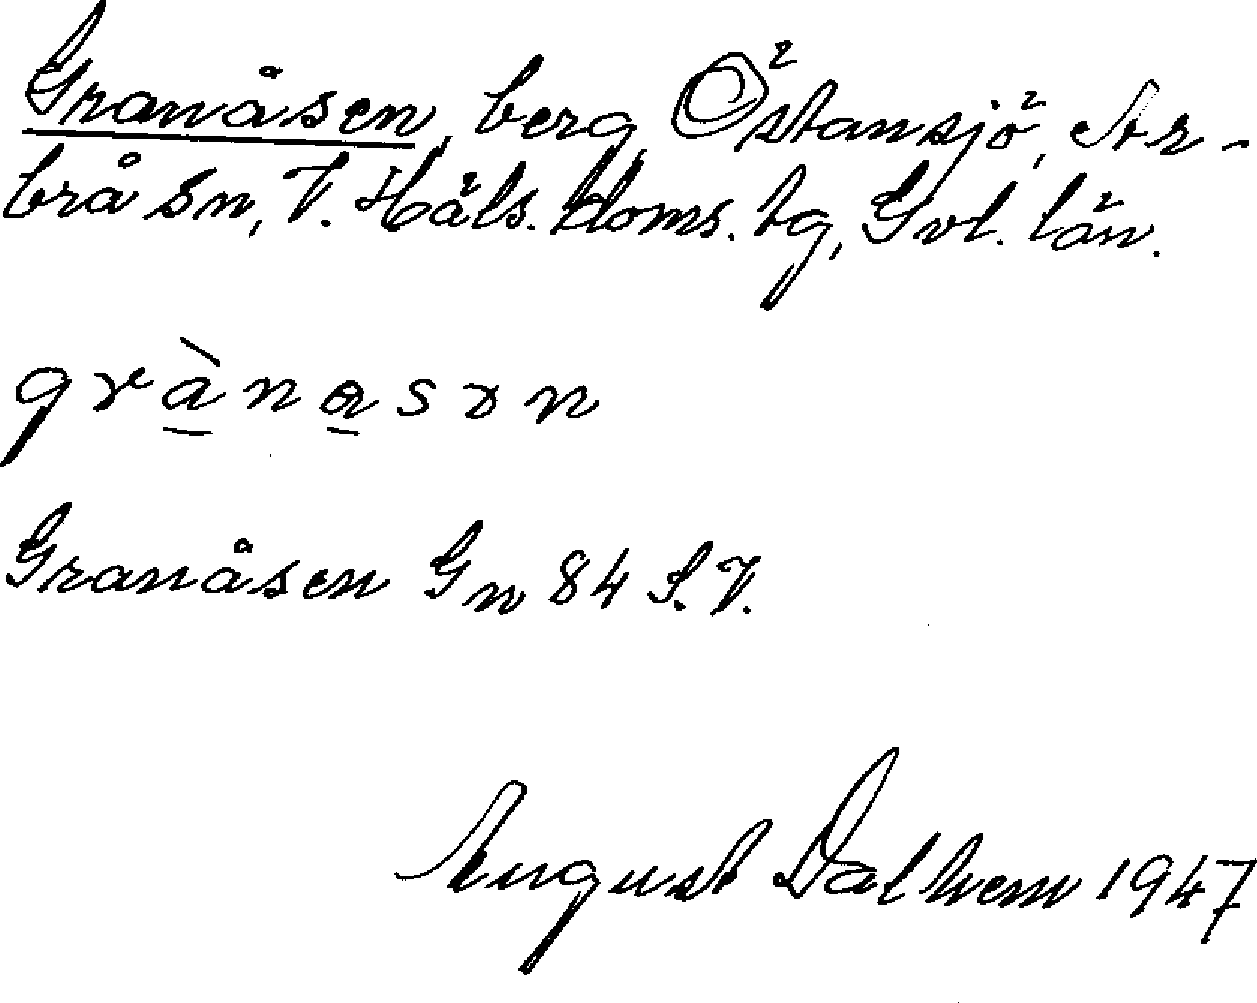 Granåsen, berg, Östansjö, Ar-
brå sn, V. Häls. doms. tg, Gvl. län.
grànasɔn
Granåsen Gn 84 S.V.
August Dalhem 1947